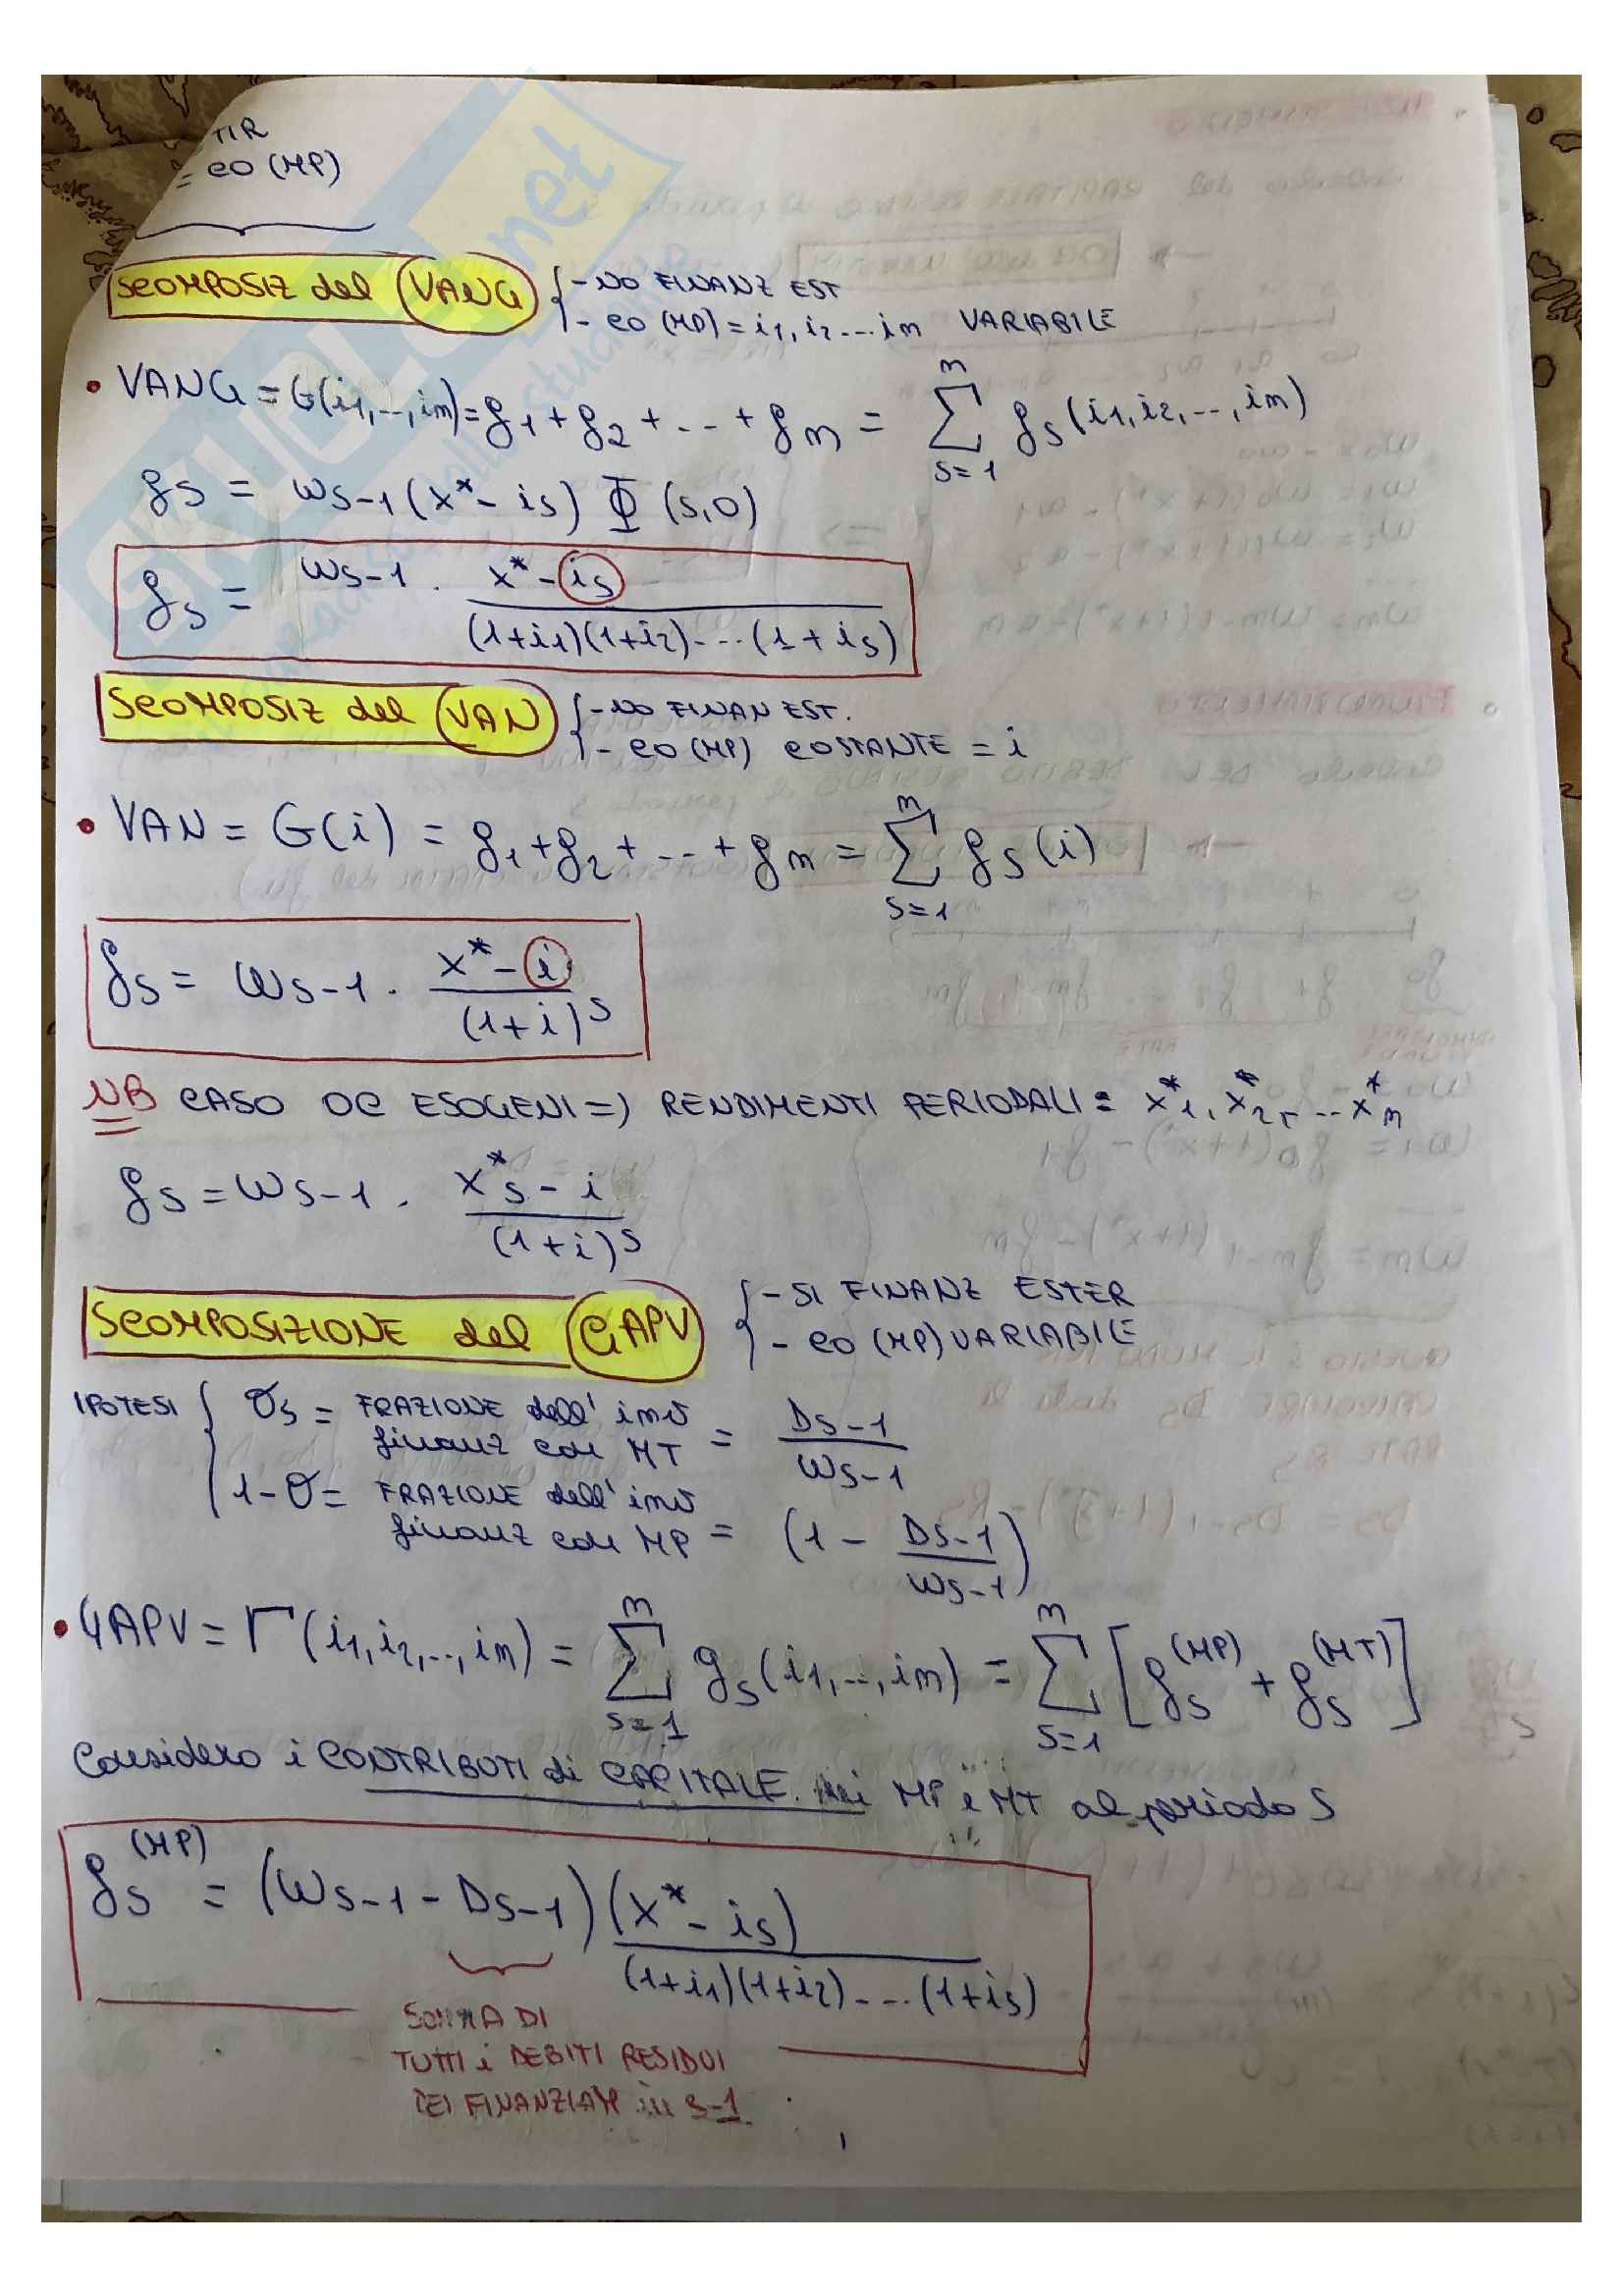 TIR
= CO (MP)
SCOMPOSIZ del VANG { - NO FINANZ EST
- CO (MP) = i1, i2 ... im VARIABILE
• VANG = G(i1, ..., im) = g1 + g2 + ... + gm = Σ(s=1, m) gs (i1, i2, ..., im)
gs = ws-1 (x* - is) Φ (s,0)
gs = ws-1 · (x* - is) / (1+i1)(1+i2)...(1+is)
SCOMPOSIZ del VAN { - NO FINAN EST.
- CO (MP) COSTANTE = i
• VAN = G(i) = g1 + g2 + ... + gm = Σ(s=1, m) gs (i)
gs = ws-1 · (x* - i) / (1+i)^s
NB CASO OC ESOGENI => RENDIMENTI PERIODALI: x*1, x*2, ... x*m
gs = ws-1 · (x*s - i) / (1+i)^s
SCOMPOSIZIONE del GAPV { - SI FINANZ ESTER
- CO (MP) VARIABILE
IPOTESI { σs = FRAZIONE dell' inv
finanz con MT = Ds-1 / ws-1
1-σ = FRAZIONE dell' inv
finanz con MP = (1 - Ds-1 / ws-1)
• GAPV = Γ (i1, i2, ..., im) = Σ(s=1, m) gs (i1, ..., im) = Σ(s=1, m) [gs^(MP) + gs^(MT)]
Considero i CONTRIBUTI di CAPITALE MP e MT al periodo s
gs^(MP) = (ws-1 - Ds-1) (x* - is) / (1+i1)(1+i2)...(1+is)
SOMMA DI
TUTTI i DEBITI RESIDUI
DEI FINANZIAM in s-1
SKUOLA.net